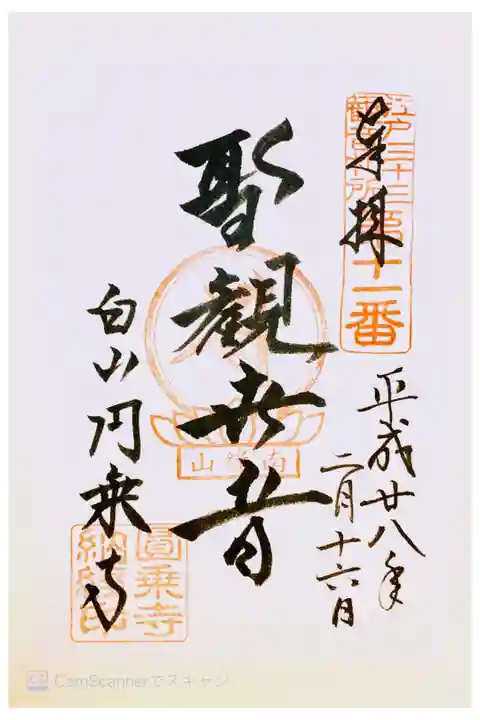 奉拝
江戸三十三
観音札所
第十一番
平成廿八年
二月十六日
聖観世音
南縁山
白山円乗寺
圓乗寺
CamScannerでスキャン